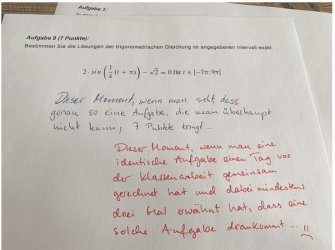 Aufgabe 1:
Aufgabe 9 (7 Punkte):
Bestimmen Sie die Lösungen der trigonometrischen Gleichung im angegebenen Intervall exakt.
2 · sin (1/4 (t + π)) − √2 = 0 für t ∈ [−7π; 9π]
Dieser Moment, wenn man sieht, dass
genau so eine Aufgabe, die man überhaupt
nicht kann, 7 Punkte bringt...
Dieser Moment, wenn man eine
identische Aufgabe einen Tag vor
der Klassenarbeit gemeinsam
gerechnet hat und dabei mindestens
drei Mal erwähnt hat, dass eine
solche Aufgabe drankommt...!!